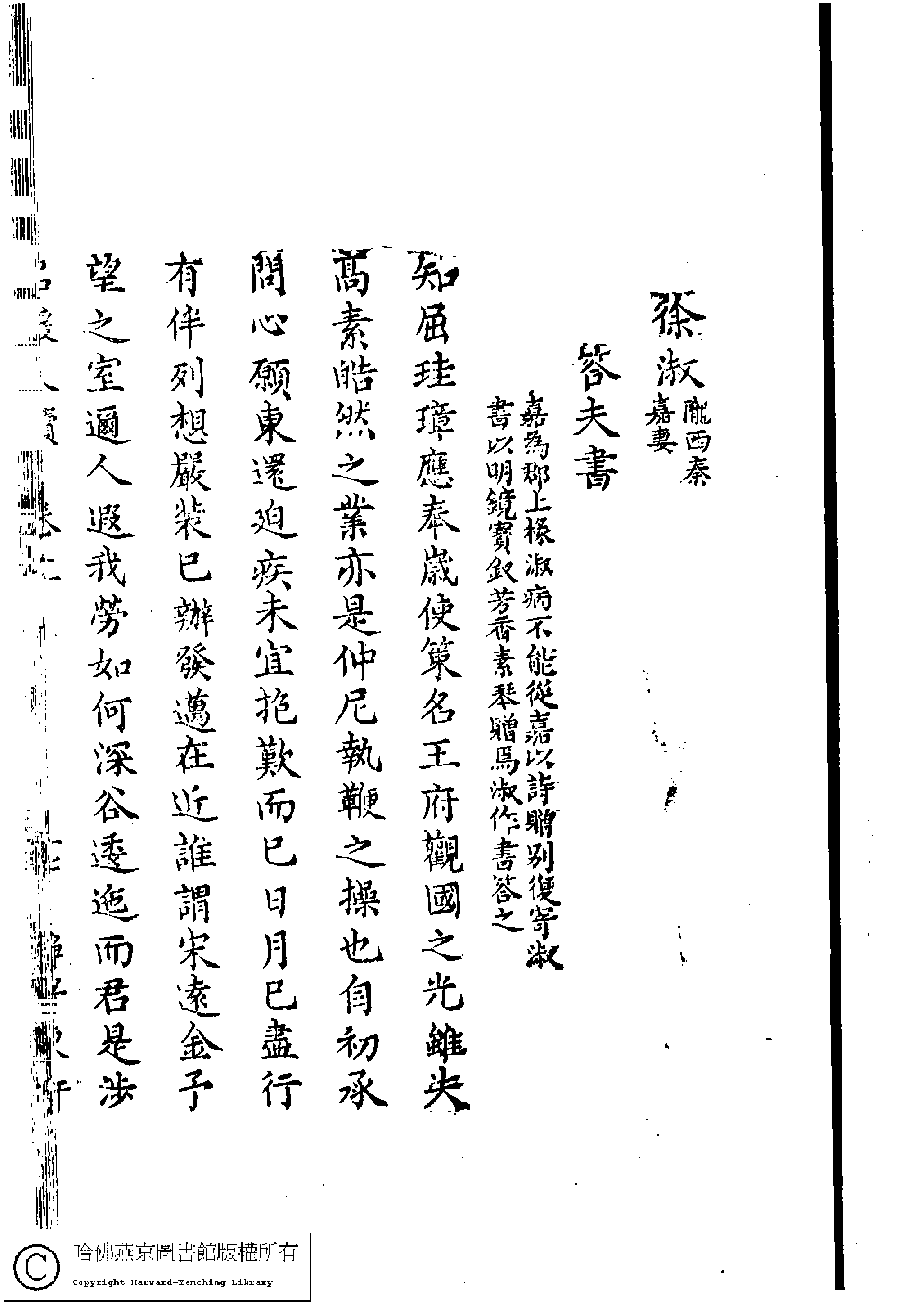 徐淑隴西秦嘉妻
答夫書
嘉為郡上掾淑病不能從嘉以詩贈別復寄淑
書以明鏡寶釵芳香素琴贈焉淑作書答之
知屈珪璋應奉歲使策名王府觀國之光雖失
高素皓然之業亦是仲尼執鞭之操也自初承
問心願東還迫疾未宜抱歎而已日月已盡行
有伴列想嚴裝已辦發邁在近誰謂宋遠企予
望之室邇人遐我勞如何深谷逶迤而君是涉
哈佛燕京圖書館版權所有
Copyright Harvard-Yenching Library